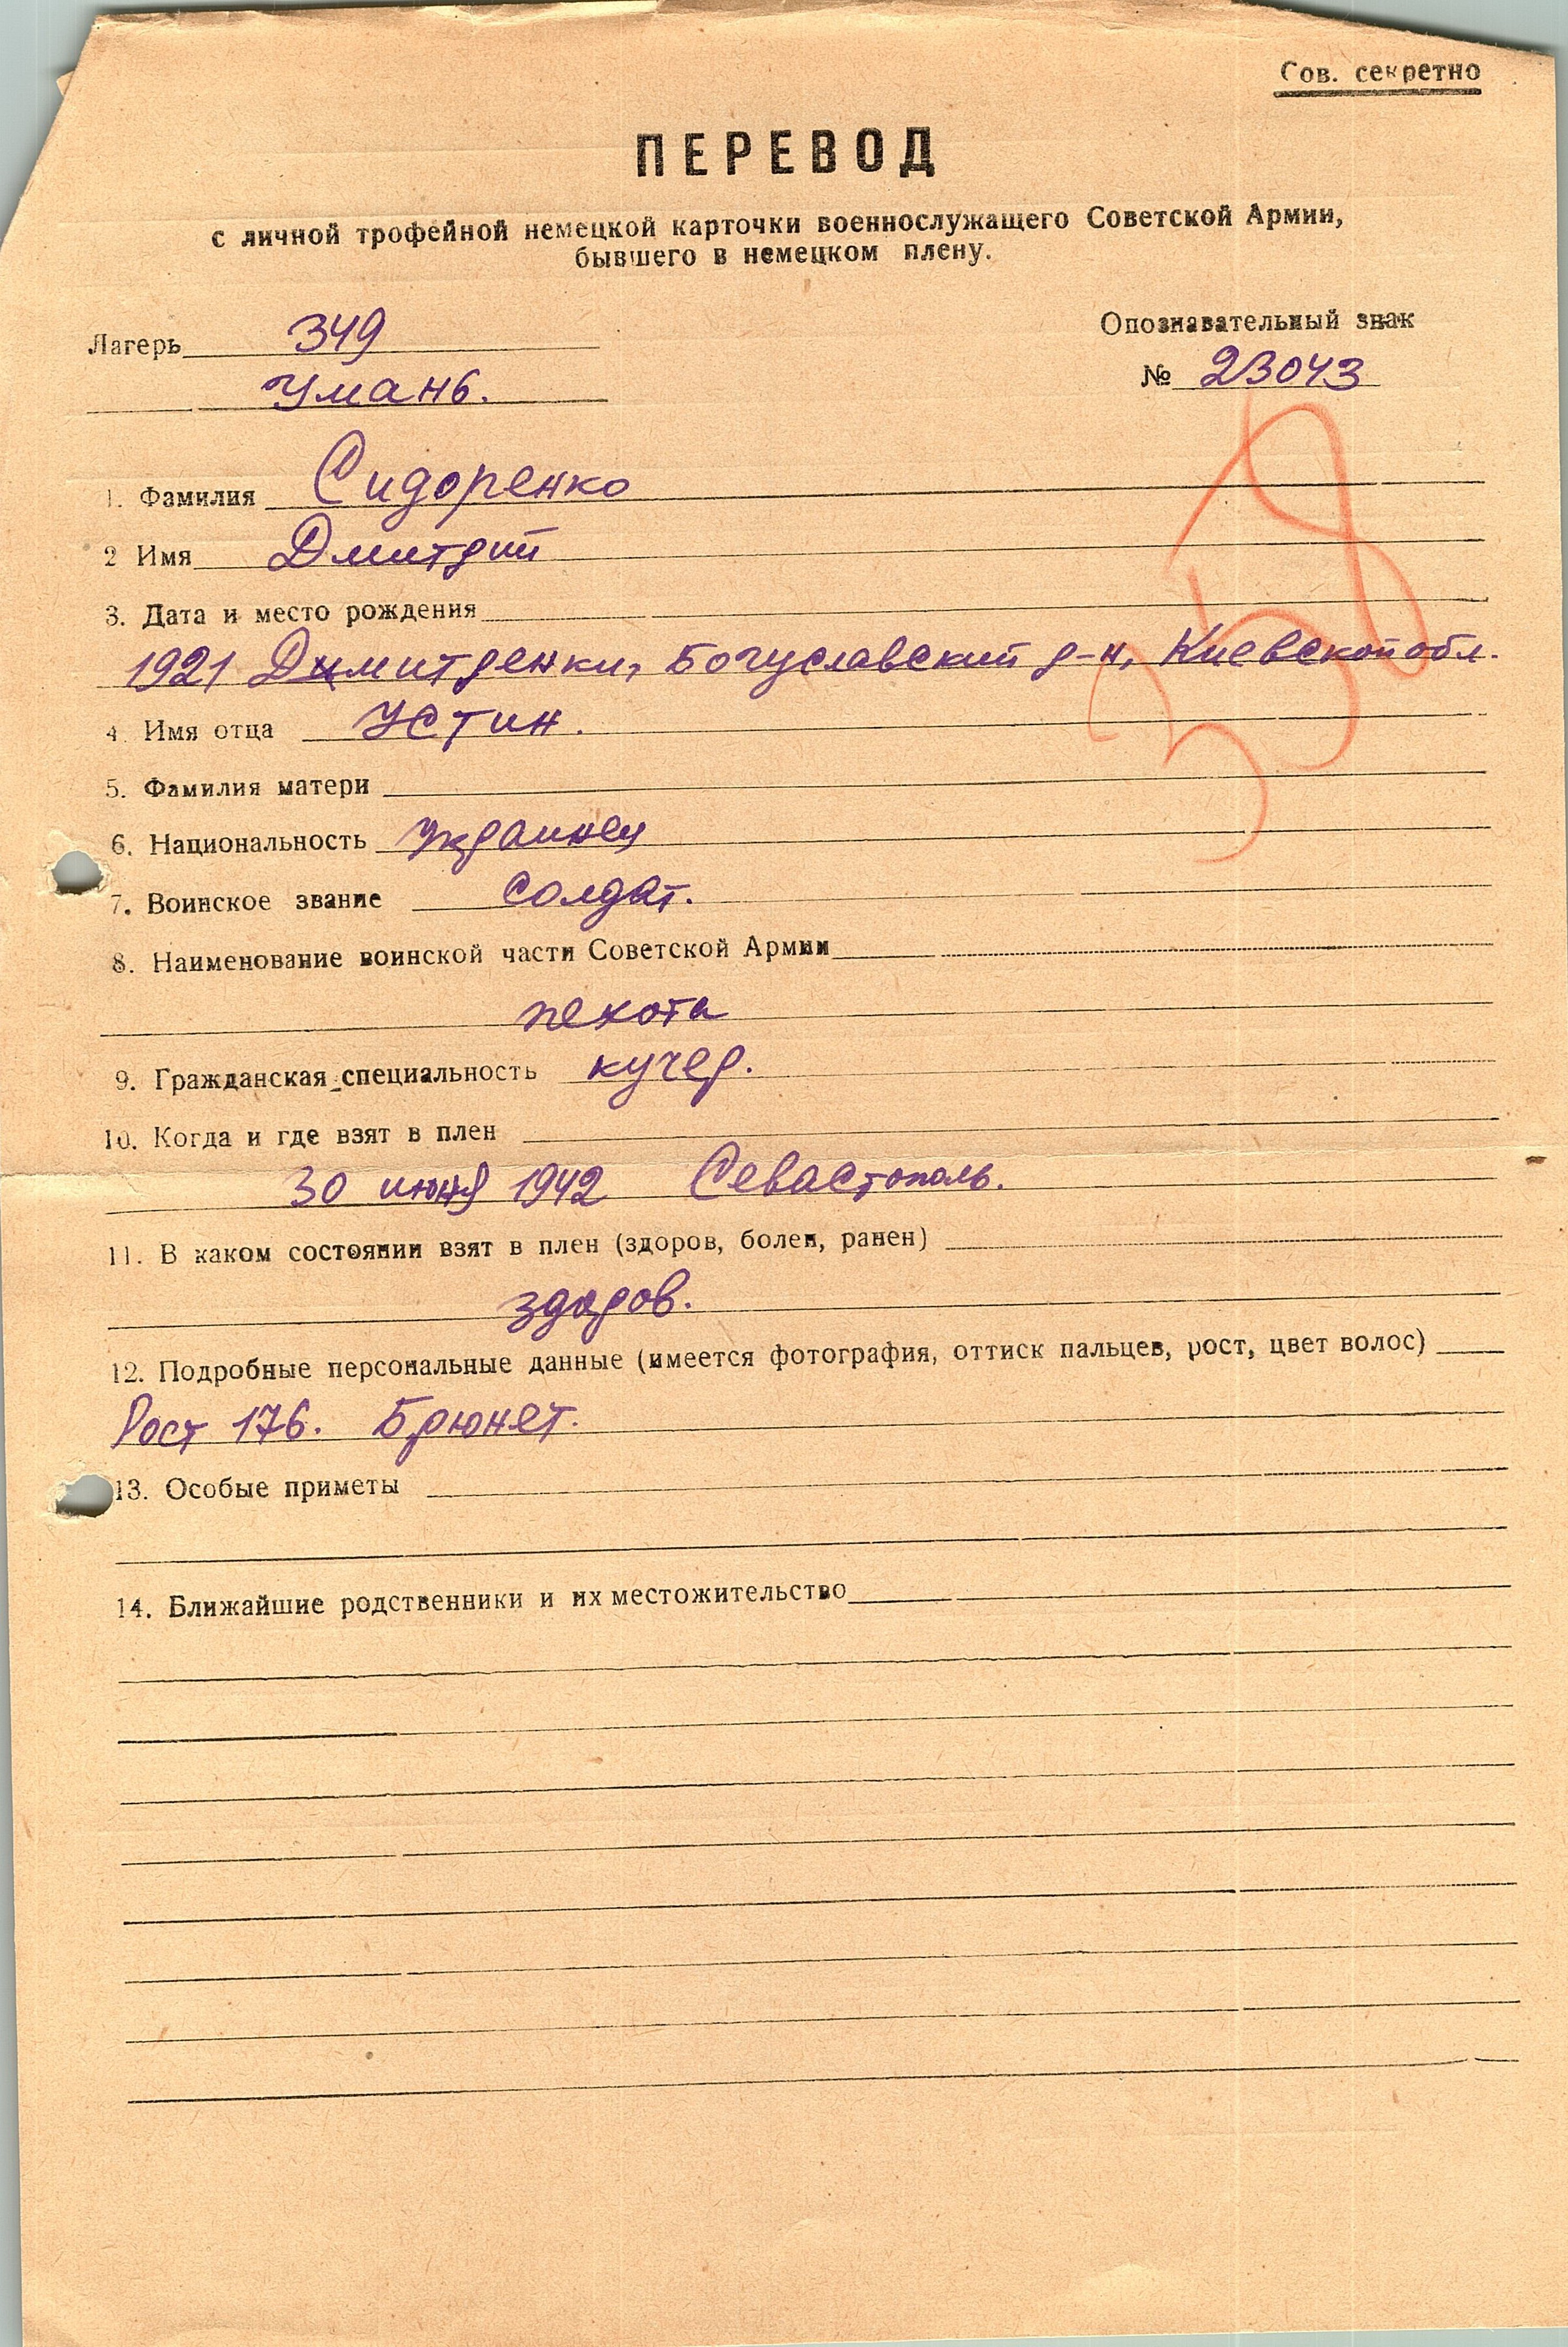 Сов. секретно
ПЕРЕВОД
с личной трофейной немецкой карточки военнослужащего Советской Армии,
бывшего в немецком плену.
Лагерь 349
Умань.
Опознавательный знак
№ 23043
1. Фамилия Сидоренко
2 Имя Дмитрий
3. Дата и место рождения
1921 Димитренки, Богуславский р-н, Киевской обл.
4. Имя отца Устин.
5. Фамилия матери
6. Национальность Украинец
7. Воинское звание солдат.
8. Наименование воинской части Советской Армии
пехота
9. Гражданская специальность кучер.
10. Когда и где взят в плен
30 июня 1942 Севастополь.
11. В каком состоянии взят в плен (здоров, болен, ранен)
здоров.
12. Подробные персональные данные (имеется фотография, оттиск пальцев, рост, цвет волос)
Рост 176. Брюнет.
13. Особые приметы
14. Ближайшие родственники и их местожительство